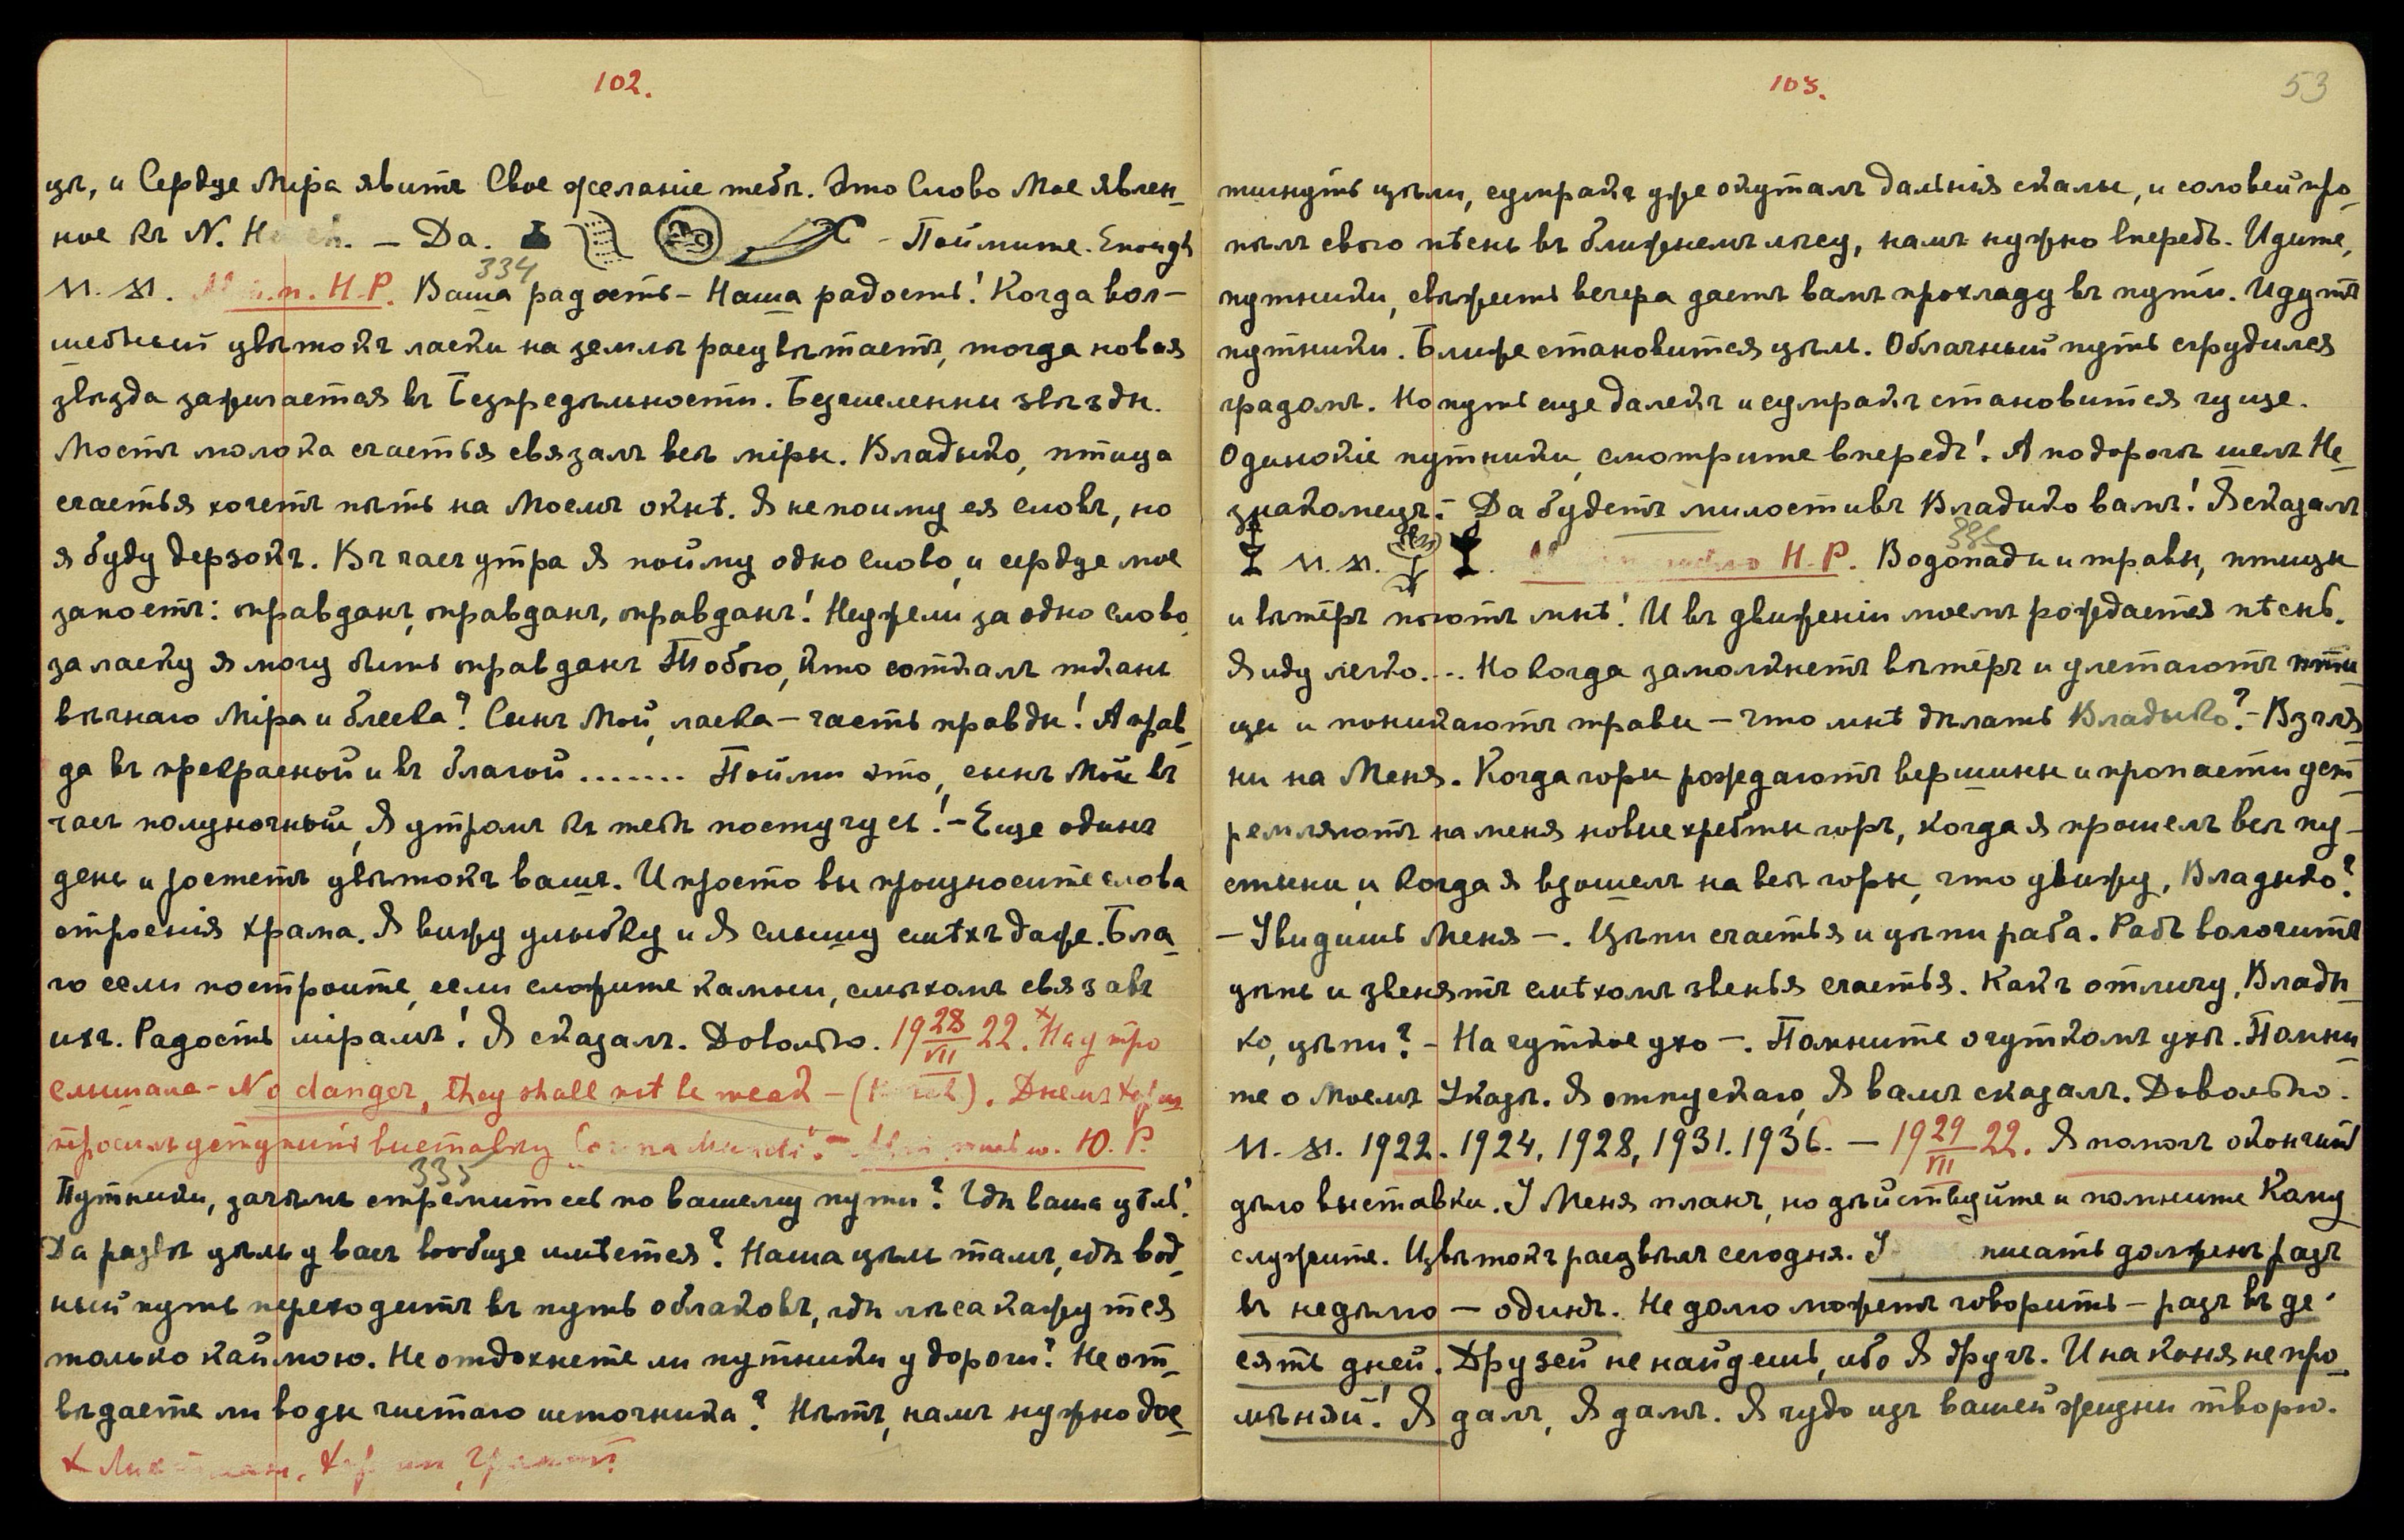 102.
цѣ, и Сердце Мiра явитъ Свое желанiе тебѣ. Это Слово Мое явлен-
ное къ N. – Да. – Поймите. Enough
М. М. Н.Р. Ваша радость – Наша радость! Когда вол-
334
шебный цвѣтокъ ласки на землѣ расцвѣтаетъ, тогда новая
звѣзда зажигается въ Безпредѣльности. Безчисленны звѣзды.
Мостъ молока счастья связалъ всѣ мiры. Владыко, птица
счастья хочетъ пѣть на моемъ окнѣ. Я не пойму ея словъ, но
я буду дерзокъ. Въ часъ утра я пойму одно слово, и сердце мое
запоетъ: оправданъ, оправданъ, оправданъ! Неужели за одно слово,
за ласку я могу быть оправданъ Тобою, кто соткалъ ткань
вѣчнаго Мiра и блеска? Сынъ Мой, ласка – часть правды! А прав-
да въ прекрасной и въ благой ....... Пойми это, сынъ Мой въ
часъ полуночный, Я утромъ къ тебѣ постучусь! – Еще одинъ
день и ростетъ цвѣтокъ вашъ. И просто вы произносите слова
строенiя храма. Я вижу улыбку и Я слышу смѣхъ даже. Бла-
го если построите, если сложите камни, смѣхомъ связавъ
ихъ. Радость мiрамъ! Я сказалъ. Довольно. 19 28/VII 22. ˣ На утро
слышала – No danger, they shall not be weak – Днемъ
просилъ устроить выставку Ю. Р.
335
Путники, зачѣмъ стремитесь по вашему пути? Гдѣ ваша цѣль?
Да развѣ цѣль у васъ вообще имѣется? Наша цѣль тамъ, гдѣ вод-
ный путь переходитъ въ путь облаковъ, гдѣ лѣса кажутся
только каймою. Не отдохнете ли путники у дороги? Не от-
вѣдаете ли воды чистаго источника? Нѣтъ, намъ нужно дос-
103.
53
тигнуть цѣли, сумракъ уже окуталъ дальнiя скалы, и соловей про-
пѣлъ свою пѣснь въ ближнемъ лѣсу, намъ нужно впередъ. Идите,
путники, свѣжесть вечера дастъ вамъ прохладу въ пути. Идутъ
путники. Ближе становится цѣль. Облачный путь сгрудился
градомъ. Но путь еще далекъ и сумракъ становится гуще.
Одинокiе путники, смотрите впередъ! А по дорогѣ шелъ Не-
знакомецъ. – Да будетъ милостивъ Владыко вамъ! Я сказалъ
М. М. Н.Р. Водопады и травы, птицы
336
и вѣтеръ поютъ мнѣ! И въ движенiи моемъ рождается пѣснь.
Я иду легко.... Но когда замолкнетъ вѣтеръ и улетаютъ пти-
цы и поникаютъ травы – что мнѣ дѣлать Владыко? – Взгля-
ни на Меня. Когда горы рождаютъ вершины и пропасти уст-
ремляютъ на меня новые хребты горъ, когда я прошелъ всѣ пу-
стыни, и когда я взошелъ на всѣ горы, что увижу, Владыко?
– Увидишь Меня –. Цѣпи счастья и цѣпи раба. Рабъ волочитъ
цѣпь и звенятъ смѣхомъ звенья счастья. Какъ отличу, Влады-
ко, цѣпи? – На чуткое ухо –. Помните о чуткомъ ухѣ. Помни-
те о Моемъ Указѣ. Я отпускаю, Я вамъ сказалъ. Довольно.
М. М. 1922. 1924. 1928, 1931. 1936. – 19 29/VII 22. Я помогъ окончить
дѣло выставки. У Меня планъ, но дѣйствуйте и помните Кому
служите. Цвѣтокъ расцвѣлъ сегодня. писать долженъ разъ
въ недѣлю – одинъ. Не долго можетъ говорить – разъ въ де-
сять дней. Друзей не найдешь, ибо Я другъ. И на коня не про-
мѣняй! Я далъ, Я далъ. Я чудо изъ вашей жизни творю.